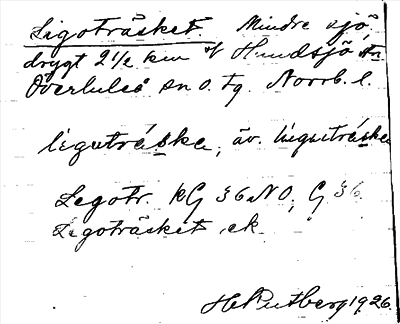 Ligoträsket. Mindre sjö,
drygt 2 1/2 km V Hundsjö
Överluleå sn o. tg. Norrb. l.
ligoträska, äv. ligutráska
Legotr. KG 36 NO, G 36.
Legoträsket ek.
H. Rutberg 1926.